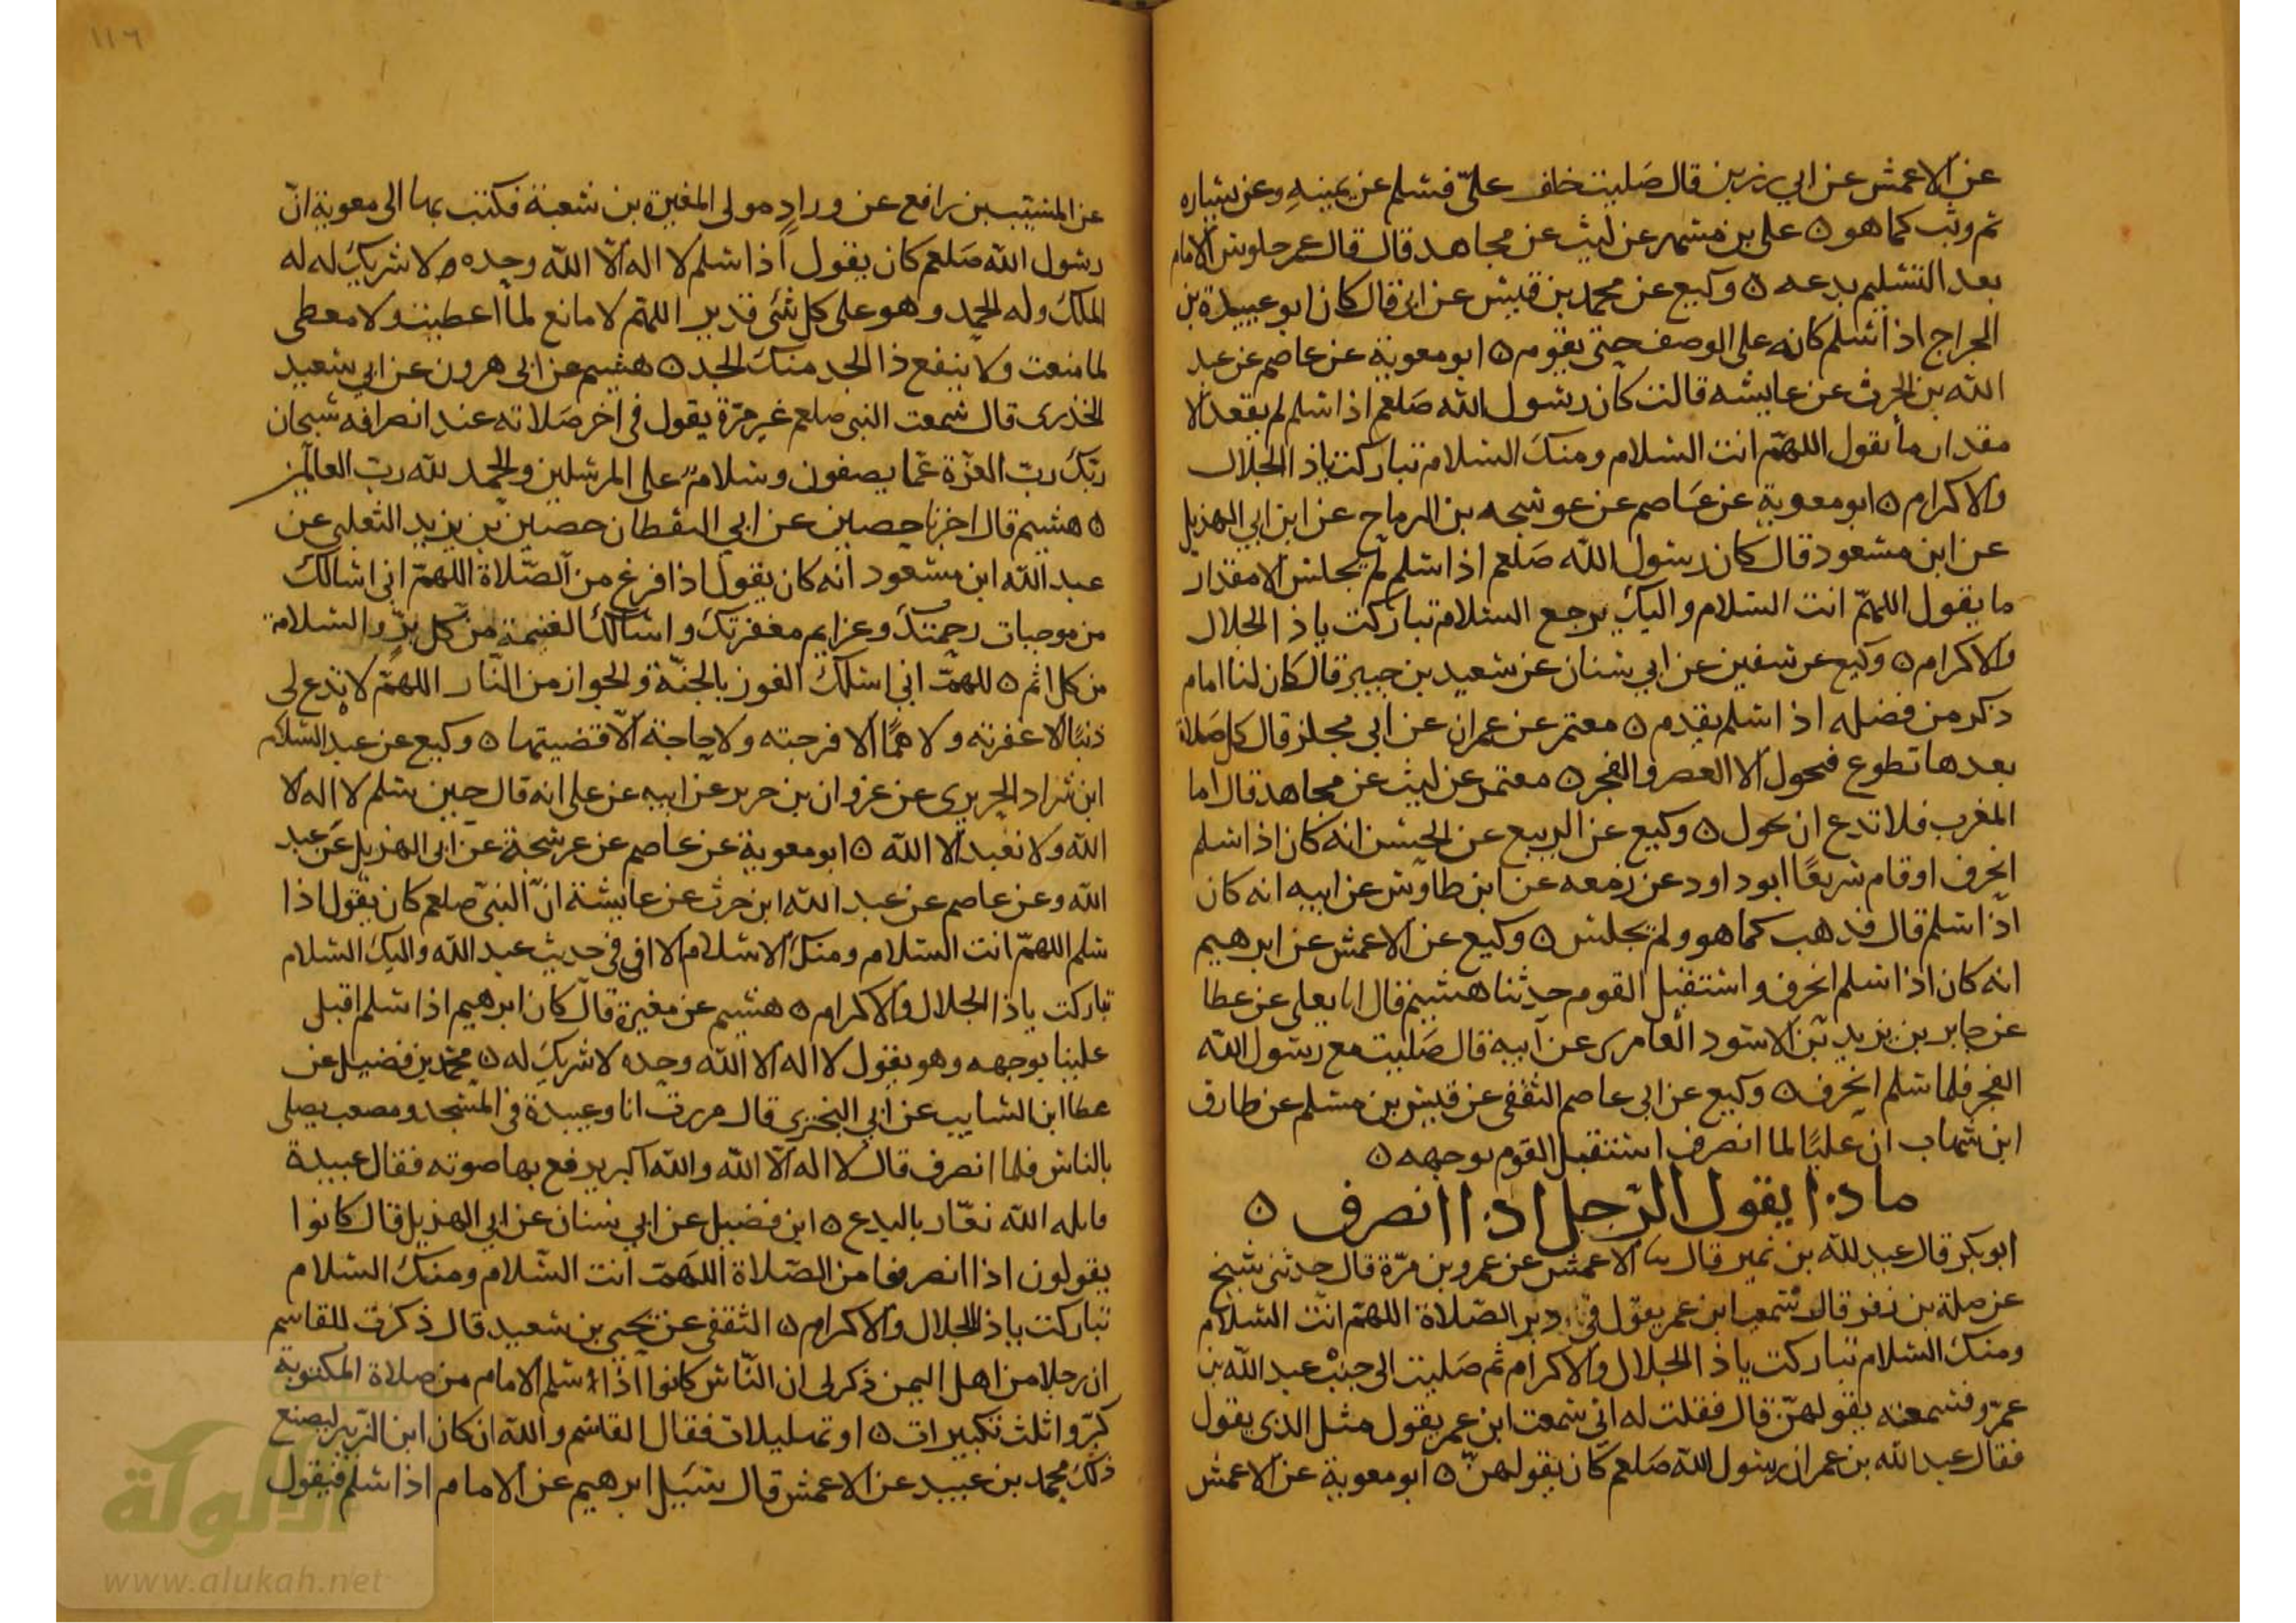 عن الاعمش عن ابي رزين قال صليت خلف علي فسلم عن يمينه وعن يساره
ثم وثب كما هو ٥ علي بن مسهر عن ليث عن مجاهد قال قال عمر جلوس الامام
بعد التسليم بدعه ٥ وكيع عن محمد بن قيس عن ابي قال كان ابو عبيدة بن
الجراج اذا سلم كانه على الوصف حتى يقوم ٥ ابو معوية عن عاصم عن عبد
الله بن الحرث عن عايشه قالت كان رسول الله صلعم اذا سلم لم يقعد الا
مقدار ما يقول اللهم انت السلام ومنك السلام تباركت ياذا الجلال
والاكرام ٥ ابو معوية عن عاصم عن عوسجه بن الرماح عن ابن ابي الهذيل
عن ابن مسعود قال كان رسول الله صلعم اذا سلم لم يجلس الا مقدار
ما يقول اللهم انت السلام واليك يرجع السلام تباركت ياذ الجلال
والاكرام ٥ وكيع عن سفين عن ابي سنان عن سعيد بن جبير قال كان لنا امام
ذكر من فضله اذا سلم يقدم ٥ معتمر عن عمران عن ابي مجلز قال كل صلاة
بعدها تطوع فتحول الا العصر والفجر ٥ معتمر عن ليث عن مجاهد قال اما
المغرب فلا تدع ان تحول ٥ وكيع عن الربيع عن الحسن انه كان اذا سلم
انحرف او قام سريعًا ابو داود عن زمعه عن ابن طاوس عن ابيه انه كان
اذا سلم قال فذهب كما هو ولم يجلس ٥ وكيع عن الاعمش عن ابرهيم
انه كان اذا سلم انحرف واستقبل القوم حدثنا هشيم قال انا يعلى عن عطا
عن جابر بن يزيد بن الاسود العامري عن ابيه قال صليت مع رسول الله
الفجر فلما سلم انحرف ٥ وكيع عن ابي عاصم الثقفي عن قيس بن مسلم عن طارق
ابن شهاب ان عليًا لما انصرف استقبل القوم بوجهه ٥
ماذا يقول الرجل اذا انصرف ٥
ابو بكر قال عبد لله بن نمير قال نا الاعمش عن عمرو بن مرة قال حدثني شيخ
عن صلة بن زفر قال سمعت ابن عمر يقول في دبر الصلاة اللهم انت السلام
ومنك السلام تباركت ياذ الجلال والاكرام ثم صليت الى جنب عبد الله بن
عمرو فسمعته يقولهن قال فقلت له اني سمعت ابن عمر يقول مثل الذي يقول
فقال عبد الله بن عمر ان رسول الله صلعم كان يقولهن ٥ ابو معوية عن الاعمش
١١٦
عن المسيب بن رافع عن وراد مولى المغيرة بن شعبة فكتب بها الى معوية ان
رسول الله صلعم كان يقول اذا سلم لا اله الا الله وحده ولا شريك له له
الملك وله الحمد وهو على كل شي قدير اللهم لا مانع لما اعطيت ولا معطي
لما منعت ولا ينفع ذا الجد منك الجد ٥ هشيم عن ابي هرون عن ابي سعيد
الخدري قال سمعت النبي صلعم غير مرة يقول في اخر صلاته عند انصرافه سبحان
ربك رب العزة عما يصفون وسلام على المرسلين والحمد لله رب العالمين
٥ هشيم قال اخبرنا حصين عن ابي اليقطان حصين بن يزيد الثعلبي عن
عبد الله ابن مسعود انه كان يقول اذا فرغ من الصلاة اللهم اني اسالك
من موجبات رحمتك وعزايم مغفرتك واسالك الغنيمة من كل بر والسلامة
من كل اثم ٥ للهمّ اني اسلك الفوز بالجنة والجواز من النار اللهم لا تدع لي
ذنبًا الا غفرته ولا همًا الا فرجته ولا حاجة الا قضيتها ٥ وكيع عن عبد السلام
ابن شداد الجريري عن غزوان بن جرير عن ابيه عن علي انه قال حين سلم لا اله الا
الله ولا نعبد الا الله ٥ ابو معوية عن عاصم عن عرسجة عن ابي الهذيل عن عبد
الله وعن عاصم عن عبد الله ابن حرث عن عايشة ان النبي صلعم كان يقول اذا
سلم اللهم انت السلام ومنك الاسلام الا افي في حديث عبد الله واليك السلام
تباركت ياذا الجلال والاكرام ٥ هشيم عن مغيرة قال كان ابرهيم اذا سلم اقبل
علينا بوجهه وهو يقول لا اله الا الله وحده لا شريك له ٥ محمد بن فضيل عن
عطا ابن السايب عن ابي البختري قال مررت انا وعبيدة في المسجد ومصعب يصلي
بالناس فلما انصرف قال لا اله الا الله والله اكبر يرفع بها صوته فقال عبيدة
الله نعّار بالبدع ٥ ابن فضيل عن ابي سنان عن ابي الهذيل قال كانوا
يقولون اذا انصرفوا من الصلاة اللهمّ انت السلام ومنك السلام
تباركت ياذ الجلال والاكرام ٥ الثقفي عن يحيى بن سعيد قال ذكرت للقاسم
ان رجلا من اهل اليمن ذكر لي ان الناس كانوا اذا سلم الامام من صلاة المكتوبة
كبّروا ثلث تكبيرات ٥ او تهليلات فقال القاسم والله ان كان ابن الزبير ليصنع
ذلك محمد بن عبيد عن الاعمش قال سئيل ابرهيم عن الامام اذا سلم فيقول
الألوكة
www.alukah.net